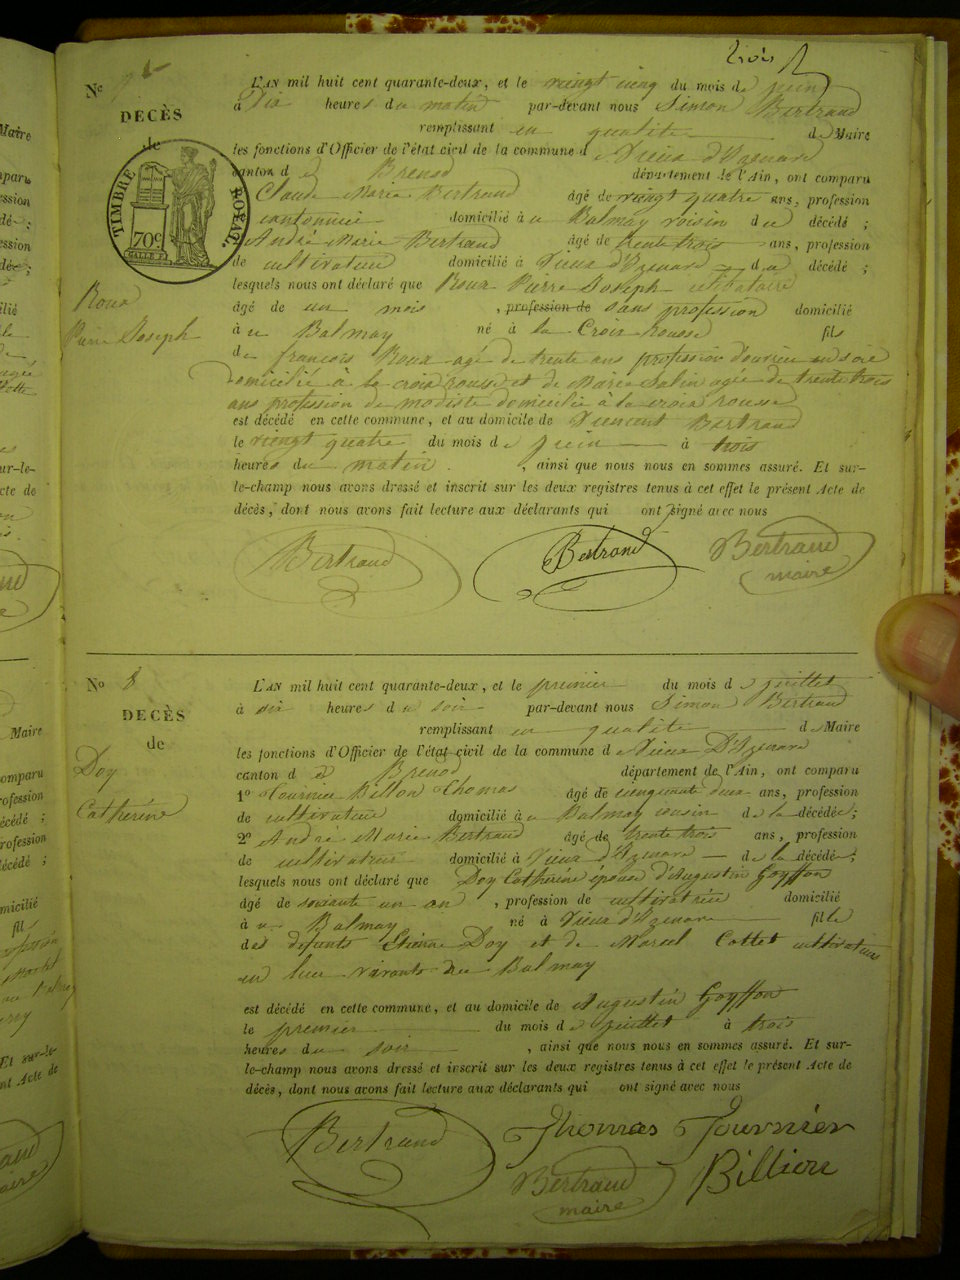 trois
N° 7
DECÈS
de
TIMBRE ROYAL
70 c
Roux
Pierre Joseph
L'AN mil huit cent quarante-deux, et le vingt cinq du mois de juin
à dix heures du matin par-devant nous Simon Bertrand
remplissant en qualité de Maire
les fonctions d'Officier de l'état civil de la commune de Vieux d'Izenave
canton de Brenod département de l'Ain, ont comparu
Claude Marie Bertrand âgé de vingt quatre ans, profession
cantonnier domicilié à Balmay voisin du décédé ;
André Marie Bertrand âgé de trente trois ans, profession
de cultivateur domicilié à Vieux d'Izenave du décédé ;
lesquels nous ont déclaré que Roux Pierre Joseph célibataire
âgé de un mois , profession de sans profession domicilié
à Balmay né à la Croix Rousse fils
de françois Roux agé de trente ans profession d'ouvrier en soie
domicilié à la croix rousse et de Marie Salin agée de trente trois
ans profession de modiste domiciliée à la croix rousse
est décédé en cette commune, et au domicile de Vincent Bertrand
le vingt quatre du mois de juin à trois
heures du matin , ainsi que nous nous en sommes assuré. Et sur-
le-champ nous avons dressé et inscrit sur les deux registres tenus à cet effet le présent Acte de
décès, dont nous avons fait lecture aux déclarants qui ont signé avec nous
Bertrand Bertrand Bertrand
maire
N° 8
DECÈS
de
Doy
Cathérine
L'AN mil huit cent quarante-deux, et le premier du mois de juillet
à six heures du soir par-devant nous Simon Bertrand
remplissant en qualité de Maire
les fonctions d'Officier de l'état civil de la commune de Vieux D'Izenave
canton de Brenod département de l'Ain, ont comparu
1° Tournier Billon Thomas âgé de cinquante deux ans, profession
de cultivateur domicilié à Balmay cousin de la décédée ;
2° André Marie Bertrand âgé de trente trois ans, profession
de cultivateur domicilié à Vieux d'Izenave de la décédée ;
lesquels nous ont déclaré que Doy Cathérine épouse d'Augustin Goyffon
âgé de soixante un an , profession de cultivatrice domicilié
à Balmay né à Vieux d'Izenave fille
des défunts Etienne Doy et de Marcel Cottet cultivateurs
en leur vivants au Balmay
est décédé en cette commune, et au domicile de Augustin Goyffon
le premier du mois de juillet à trois
heures du soir , ainsi que nous nous en sommes assuré. Et sur-
le-champ nous avons dressé et inscrit sur les deux registres tenus à cet effet le présent Acte de
décès, dont nous avons fait lecture aux déclarants qui ont signé avec nous
Bertrand Thomas Tournier
Bertrand Billion
maire